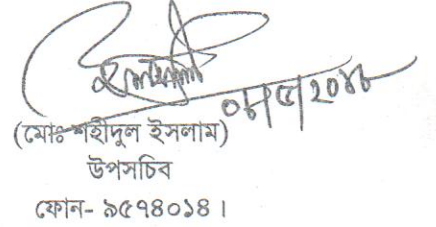 ০৮/৫/২০১৮
(মোঃ শহীদুল ইসলাম)
উপসচিব
ফোন- ৯৫৭৪০১৪।